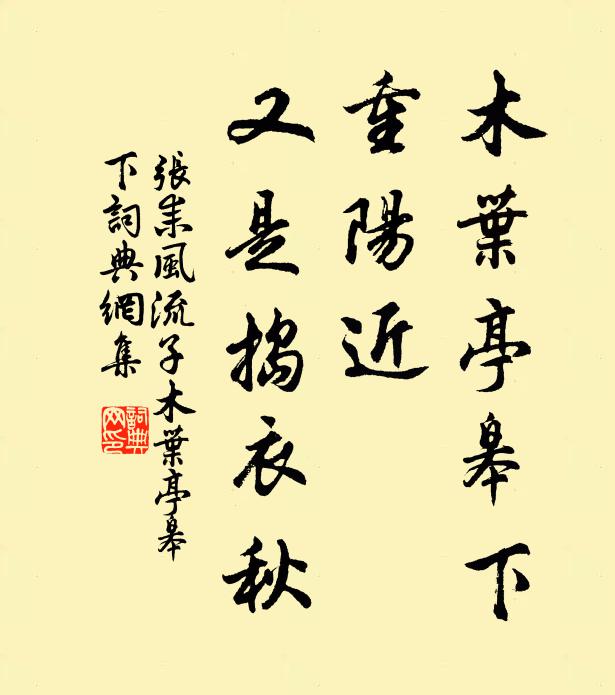 木葉亭皋下
重陽近
又是搗衣秋
張耒風流子木葉亭皋
下詞典網集
詞典
网印